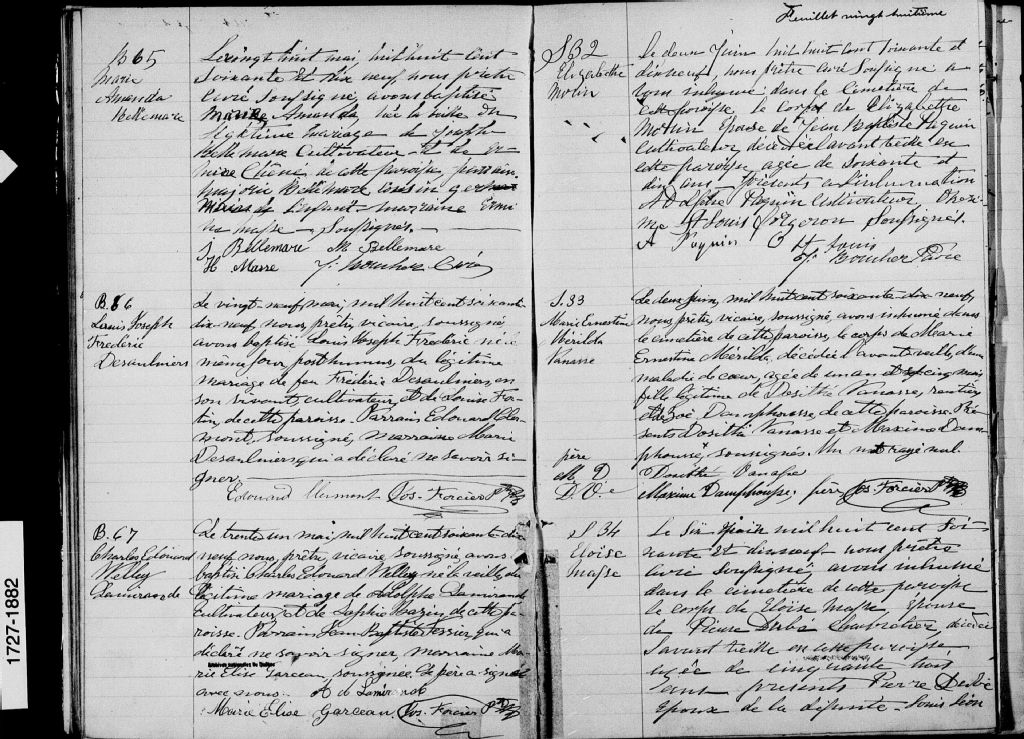 B 65
Marie
Amanda
Bellemare
Le vingt huit mai, mil huit cent
soixante et dix neuf nous prêtre
curé soussigné, avons baptisé
Marie Amanda, née la veille du
légitime mariage de Joseph
Bellemare Cultivateur et de
Chêne, de cette paroisse, parrain
Bellemare cousin germain
de l'enfant marraine
Masse soussignés.
J Bellemare M Bellemare
H Masse J. Boucher Curé
B. 66
Louis Joseph
Frédéric
Desaulniers
Le vingt-neuf mai, mil huit cent soixante
dix-neuf, nous, prêtre, vicaire, soussigné,
avons baptisé Louis Joseph Frédéric né le
même jour posthumus, du légitime
mariage de feu Frédéric Desaulniers, en
son vivant cultivateur, et de Louise For-
tin, de cette paroisse. Parrain Edouard Cler-
mont, soussigné, marraine Marie
Desaulniers qui a déclaré ne savoir si-
gner.
Edouard Clermont Jos. Forcier Ptre
B. 67
Charles Edouard
Welley
Lamirande
Le trente un mai, mil huit cent soixante dix
neuf, nous, prêtre, vicaire, soussigné, avons
baptisé Charles Edouard Welley né la veille, du
légitime mariage de Adolphe Lamirande
cultivateur, et de Sophie de cette pa-
roisse. Parrain Jean Baptiste Tessier, qui a
déclaré ne savoir signer, marraine Ma-
rie Elise Garceau, soussignée. Le père a signé
avec nous. A de Lamirande
Marie Elise Garceau, Jos. Forcier Ptre
Archives nationales du Québec
1727-1882
Feuillet vingt huitième
S 32
Elizabeth
Morin
Le deux Juin mil huit cent soixante et
dix neuf, nous prêtre curé soussigné a-
vons inhumé dans le cimetière de
cette paroisse, le corps de Elizabeth
Morin Epouse de Jean Baptiste Paquin
cultivateur, décédée avant hier en
cette paroisse, agée de soixante et
dix ans. Présents à l'inhumation
Adolphe Paquin cultivateur,
St Louis soussignés.
A Paquin O St Louis
J. Boucher Ptre
S. 33
Marie Ernestine
Mérilda
Vanasse
Le deux Juin, mil huit cent soixante dix-neuf,
nous, prêtre, vicaire, soussigné avons inhumé dans
le cimetière de cette paroisse, le corps de Marie
Ernestine Mérilda, décédée l'avant veille, d'une
maladie de cœur, agée de un an et cinq mois
fille légitime de Dosithé Vanasse, rentier,
et de Zoé Damphousse, de cette paroisse. Pré-
sents Dosithé Vanasse et Maxime Dam-
phousse, soussignés. Un mot rayé nul.
père
M. D
D. V.
Dosithé Vanasse
Maxime Damphousse, père Jos. Forcier Ptre
S 34
Eloise
Masse
Le Six Juin mil huit cent soi-
xante et dix neuf nous prêtre
curé soussigné avons inhumé
dans le cimetière de cette paroisse
le corps de Eloïse Masse, épouse
de Pierre Dubé décédée
l'avant veille en cette paroisse
agée de cinquante trois
ans presents Pierre Dubé
époux de la défunte Louis Léon